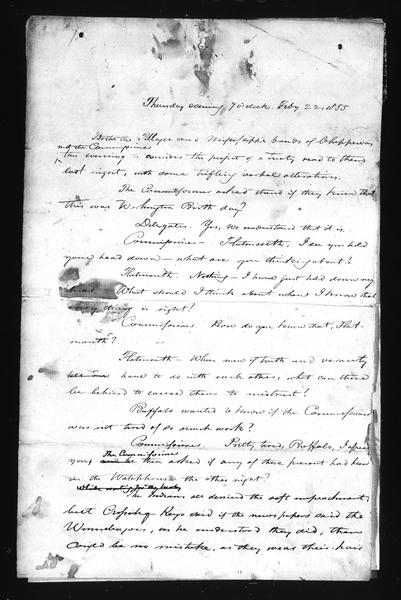 Thursday evening, 7 o'clock Feby 22, 1855
Both the Pillager and Mississippi bands of Chippewas
met the Commissioner
this evening to consider the project of a treaty read to them
last night, with some trifling verbal alterations.
The Commissioner asked them if they knew that
this was Washington Birth day?
Delegates. Yes, we understand that it is.
Commissioner - Flatmouth, I see you hold
your head down - what are you thinking about?
Flatmouth. Nothing - I have just held down my
head. What should I think about when I know that
every thing is right?
Commissioner. How do you know that, Flat-
mouth?
Flatmouth - When men of truth and veracity
have to do with each other, what can there
be behind to cause them to mistrust?
Buffalo wanted to know if the Commissioner
was not tired of so much work?
Commissioner. Pretty tired, Buffalo, I assure
you,
The Commissioner
then asked if any of these present had been
in the Watch house the other night?
The Indians all denied the soft impeachment,
but Crossing Keys said if the newspapers said the
Winnebagoes, as he understood they did, there
could be no mistake, as they wear their hair